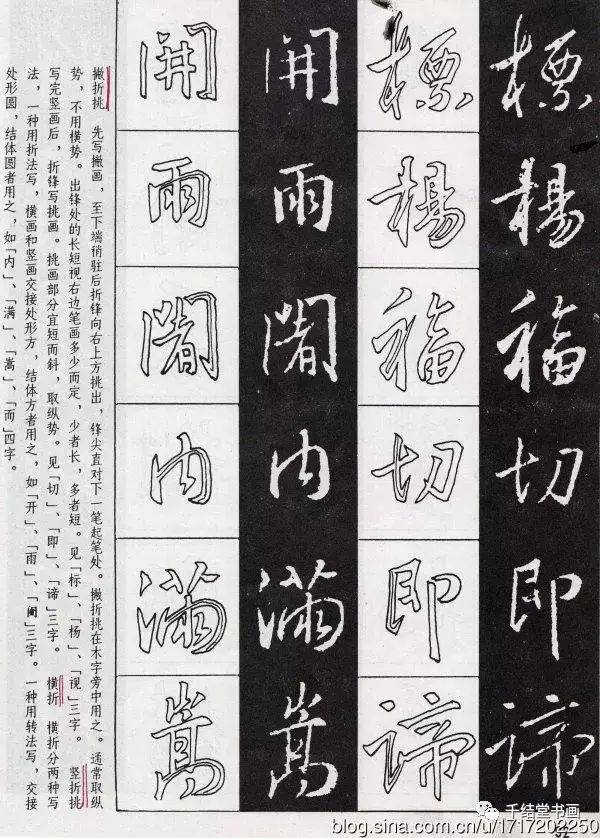 標楊福切即諦
標楊福切即諦
開雨闍内滿嵩
開雨闍内滿嵩
撇折挑 先写撇画，至下端稍驻后折锋向右上方挑出，锋尖直对下一笔起笔处。撇折挑在木字旁中用之。通常取纵
势，不用横势。出锋处的长短视右边笔画多少而定，少者长，多者短。见「标」、「杨」、「视」三字。 竖折挑
写完竖画后，折锋写挑画。挑画部分宜短而斜，取纵势。见「切」、「即」、「谛」三字。 横折 横折分两种写
法，一种用折法写，横画和竖画交接处形方，结体方者用之，如「开」、「雨」、「阇」三字。一种用转法写，交接
处形圆，结体圆者用之，如「内」、「满」、「嵩」、「而」四字。
千结堂书画
blog.sina.com.cn/u/1717202250